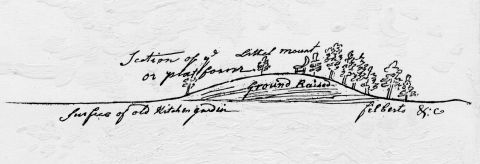 Section of yᵉ Littel mount
or platform
Ground Raised
Surfies of old Kitchen garden
filberts &c